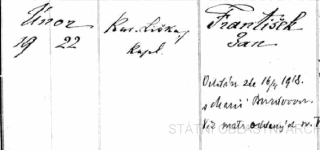 Únor
19 22
Kar. Liška,
kapl.
František
Jan
Oddán zde 16/4 1918.
s Marií
Viz matr. oddaných
STÁTNÍ OBLASTNÍ ARCH